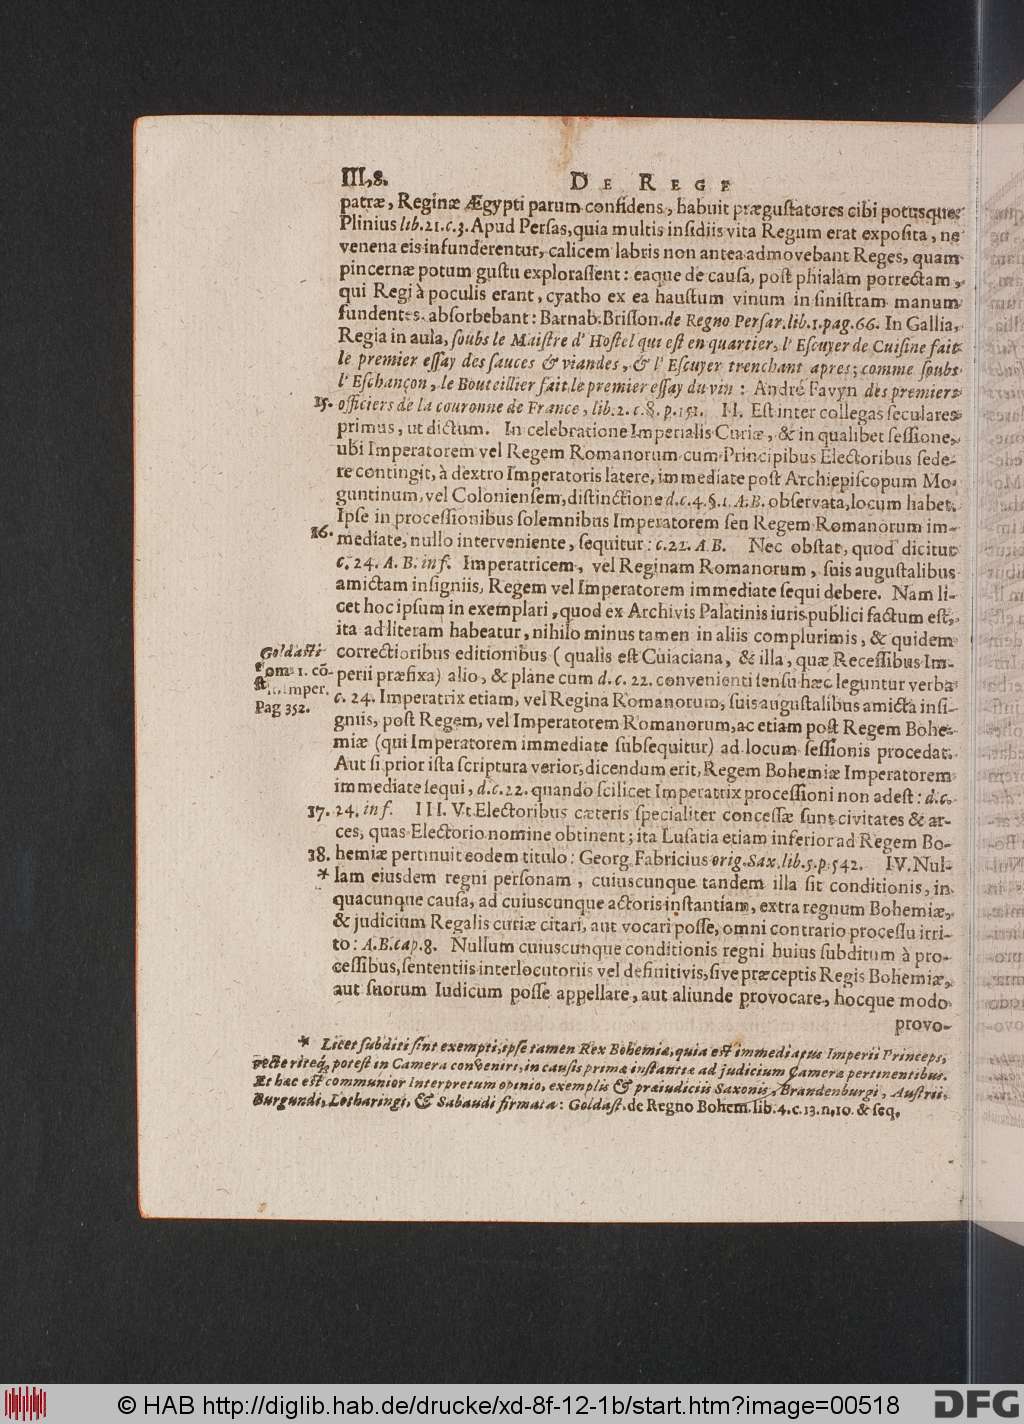 III,8. DE REGE
patræ, Reginæ Ægypti parum confidens, habuit prægustatores cibi potusque:
Plinius lib.21.c.3. Apud Persas, quia multis insidiis vita Regum erat exposita, ne
venena eis infunderentur, calicem labris non antea admovebant Reges, quam
pincernæ potum gustu explorassent: eaque de causa, post phialam porrectam,
qui Regi à poculis erant, cyatho ex ea haustum vinum in sinistram manum
fundentes absorbebant: Barnab. Brisson. de Regno Persar. lib.1. pag.66. In Gallia,
Regia in aula, soubs le Maistre d' Hostel qui est en quartier, l' Escuyer de Cuisine fait
le premier essay des sauces & viandes, & l' Escuyer trenchant apres; comme soubs
l' Eschançon, le Bouteillier fait le premier essay du vin: André Favyn des premiers
15. officiers de la couronne de France, lib.2. c.§. p.151. II. Est inter collegas seculares
primus, ut dictum. In celebratione Imperialis Curiæ, & in qualibet sessione,
ubi Imperatorem vel Regem Romanorum cum Principibus Electoribus sede-
re contingit, à dextro Imperatoris latere, immediate post Archiepiscopum Mo-
guntinum, vel Coloniensem, distinctione d.c.4.§.1. A.B. observata, locum habet.
Ipse in processionibus solemnibus Imperatorem seu Regem Romanorum im-
16. mediate, nullo interveniente, sequitur: c.22. A B. Nec obstat, quod dicitur
c. 24. A. B. inf. Imperatricem, vel Reginam Romanorum, suis augustalibus
amictam insigniis, Regem vel Imperatorem immediate sequi debere. Nam li-
cet hoc ipsum in exemplari, quod ex Archivis Palatinis iuris publici factum est,
ita ad literam habeatur, nihilo minus tamen in aliis complurimis, & quidem
Goldasti correctioribus editionibus (qualis est Cuiaciana, & illa, quæ Recessibus Im-
tom. 1. cō- perii præfixa) alio, & plane cum d. c. 22. convenienti sensu hæc leguntur verba
stit. Imper. c. 24. Imperatrix etiam, vel Regina Romanorum, suis augustalibus amicta insi-
Pag 352. gniis, post Regem, vel Imperatorem Romanorum, ac etiam post Regem Bohe-
miæ (qui Imperatorem immediate subsequitur) ad locum sessionis procedat.
Aut si prior ista scriptura verior, dicendum erit, Regem Bohemiæ Imperatorem
immediate sequi, d.c.22. quando scilicet Imperatrix processioni non adest: d.c.
17. 24. inf. III. Vt Electoribus cæteris specialiter concessæ sunt civitates & ar-
ces, quas Electorio nomine obtinent; ita Lusatia etiam inferior ad Regem Bo-
18. hemiæ pertinuit eodem titulo: Georg. Fabricius orig. Sax. lib.5. p.542. IV. Nul-
* lam eiusdem regni personam, cuiuscunque tandem illa sit conditionis, in
quacunque causa, ad cuiuscunque actoris instantiam, extra regnum Bohemiæ,
& judicium Regalis curiæ citari, aut vocari posse, omni contrario processu irri-
to: A.B. cap.8. Nullum cuiuscunque conditionis regni huius subditum à pro-
cessibus, sententiis interlocutoriis vel definitivis, sive præceptis Regis Bohemiæ,
aut suorum Iudicum posse appellare, aut aliunde provocare, hocque modo
provo-
* Licet subditi sint exempti, ipse tamen Rex Bohemiæ, quia est immediatus Imperii Princeps,
recte riteq; potest in Camera conveniri, in causis primæ instantiæ ad judicium Cameræ pertinentibus.
Et hæc est communior Interpretum opinio, exemplis & præiudiciis Saxonis, Brandenburgi, Austrii,
Burgundi, Lotharingi, & Sabaudi firmata: Goldast. de Regno Bohem. lib. 4. c. 13. n. 10. & seq.
© HAB http://diglib.hab.de/drucke/xd-8f-12-1b/start.htm?image=00518
DFG